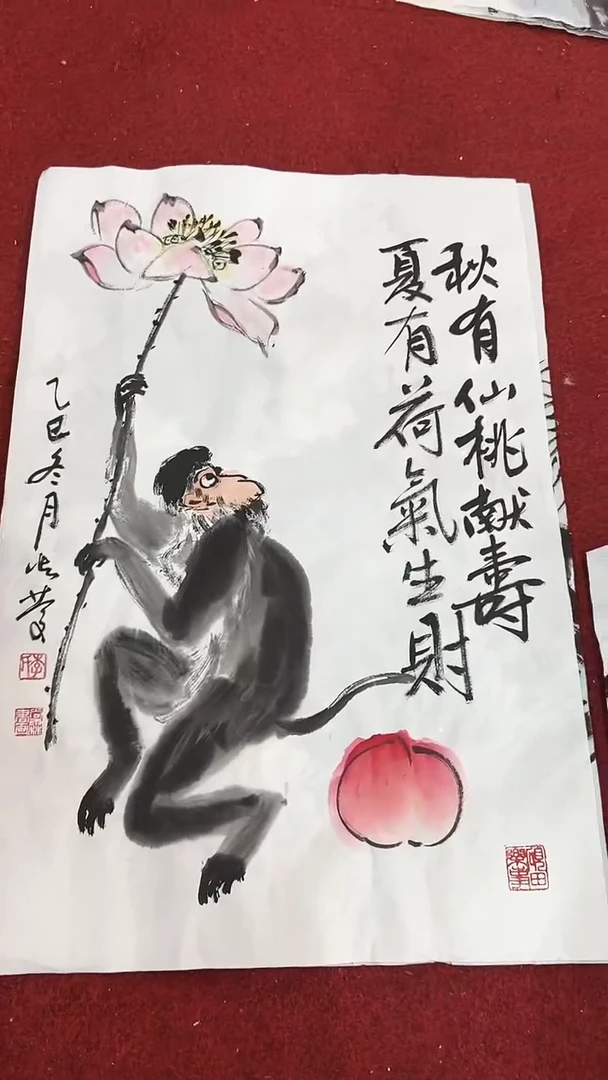 秋有仙桃献壽
夏有荷氣生財
乙巳冬月